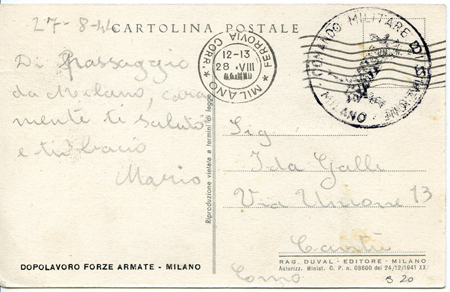 27-8-44
CARTOLINA POSTALE
MILANO
FERROVIA COR.
12-13
28 VIII
COMANDO MILITARE DI STAZIONE
MILANO
Di passaggio
da Milano, cara
mente ti saluto
e ti bacio
Mario
Riproduzione vietata a termini di legge
Sig
Ida Galli
Via Unione 13
Cantù
Como
DOPOLAVORO FORZE ARMATE - MILANO
RAG. DUVAL - EDITORE - MILANO
Autorizz. Minist. C. P. n. 08600 del 24/12/1941 XX
B 20